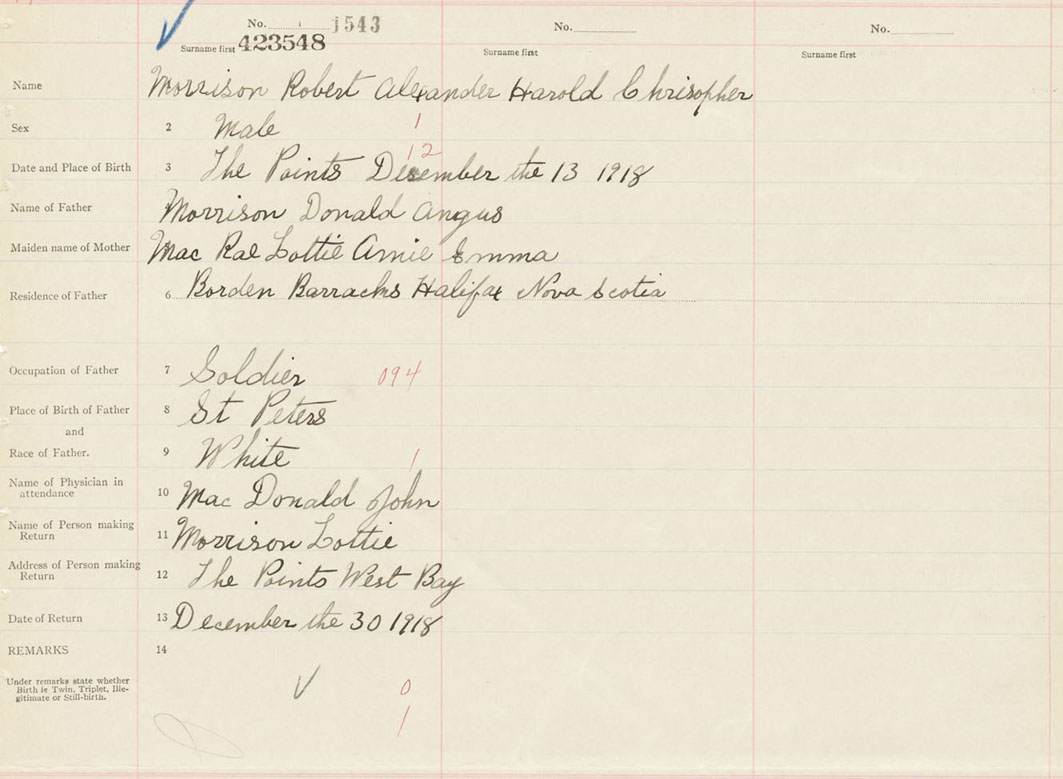 No. 1543 No. No.
Surname first 423548 Surname first Surname first
Name Morrison Robert Alexander Harold Chrisopher
Sex 2 Male 1
12
Date and Place of Birth 3 The Points December the 13 1918
Name of Father Morrison Donald Angus
Maiden name of Mother Mac Rae Lottie Annie Emma
Residence of Father 6 Borden Barracks Halifax Nova Scotia
Occupation of Father 7 Soldier 094
Place of Birth of Father 8 St Peters
and
Race of Father. 9 White 1
Name of Physician in
attendance 10 Mac Donald John
Name of Person making
Return 11 Morrison Lottie
Address of Person making
Return 12 The Points West Bay
Date of Return 13 December the 30 1918
REMARKS 14
Under remarks state whether
Birth is Twin, Triplet, Ille-
gitimate or Still-birth. 0
1